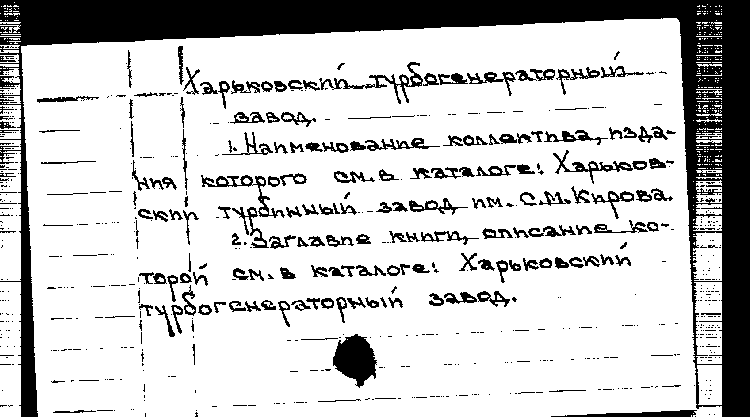 Харьковский турбогенераторный
завод.
1. Наименование коллектива, изда-
ния которого см. в каталоге: Харьков-
ский турбинный завод им. С.М.Кирова.
2. Заглавие книги, описание ко-
торой см. в каталоге: Харьковский
турбогенераторный завод.